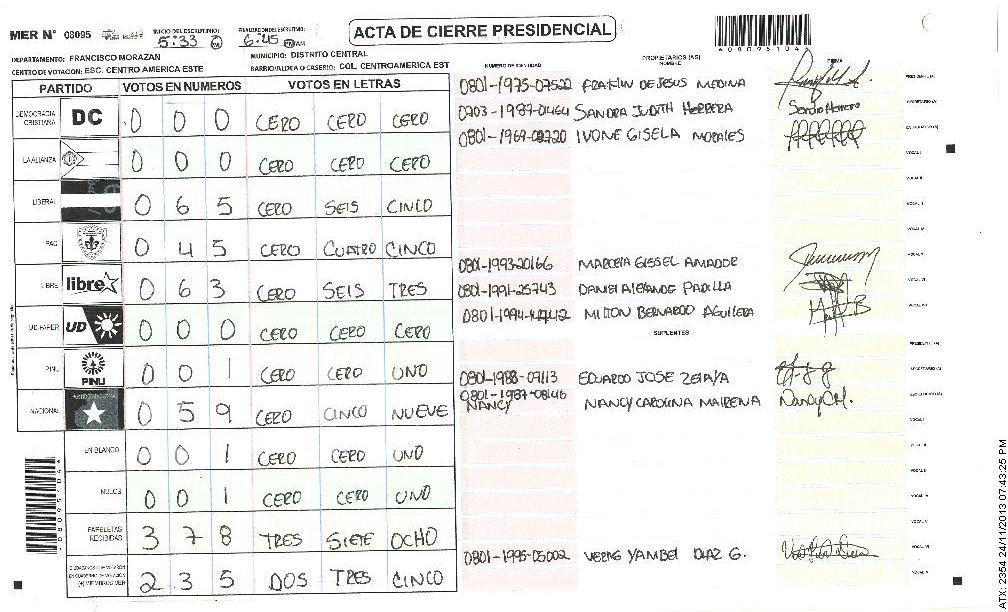 MER N° 08095
INICIO DEL ESCRUTINIO: 5:33 PM
FINALIZACION DEL ESCRUTINIO: 6:45 PM
ACTA DE CIERRE PRESIDENCIAL
DEPARTAMENTO: FRANCISCO MORAZAN
MUNICIPIO: DISTRITO CENTRAL
CENTRO DE VOTACION: ESC. CENTRO AMERICA ESTE
BARRIO/ALDEA O CASERIO: COL. CENTROAMERICA ESTE
PARTIDO VOTOS EN NUMEROS VOTOS EN LETRAS
DEMOCRACIA CRISTIANA DC 0 0 0 CERO CERO CERO
LA ALIANZA 0 0 0 CERO CERO CERO
LIBERAL 0 6 5 CERO SEIS CINCO
PAC 0 4 5 CERO CUATRO CINCO
LIBRE libre 0 6 3 CERO SEIS TRES
UD-FAPER UD 0 0 0 CERO CERO CERO
PINU PINU 0 0 1 CERO CERO UNO
NACIONAL 0 5 9 CERO CINCO NUEVE
EN BLANCO 0 0 1 CERO CERO UNO
NULOS 0 0 1 CERO CERO UNO
PAPELETAS RECIBIDAS 3 7 8 TRES SIETE OCHO
CIUDADANOS QUE VOTARON EN CUADERNO DE VOTACION (+) MIEMBROS MER 2 3 5 DOS TRES CINCO
NUMERO DE IDENTIDAD PROPIETARIOS (AS) NOMBRE FIRMA
0801-1975-07522 FRANKLIN DE JESUS MEDINA PRESIDENTE (A)
0703-1987-01464 SANDRA JUDITH HERRERA SECRETARIO (A)
0801-1969-02720 IVONE GISELA MORALES ESCRUTADOR (A)
VOCAL I
VOCAL II
VOCAL III
VOCAL IV
0801-1993-20166 GISSEL AMADOR VOCAL V
0801-1991-25743 PADILLA VOCAL VI
MILTON BERNARDO AGUILERA VOCAL VII
SUPLENTES
PRESIDENTE (A)
0801-1988-09113 EDUARDO JOSE ZELAYA SECRETARIO (A)
0801-1987-08146 NANCY CAROLINA MAIRENA Nancy C.M. ESCRUTADOR (A)
NANCY
VOCAL I
VOCAL II
VOCAL III
VOCAL IV
VOCAL V
0801-1995-05002 YAMBEL DIAZ G. VOCAL VI
ATX: 2354 24/11/2013 07:43:25 PM